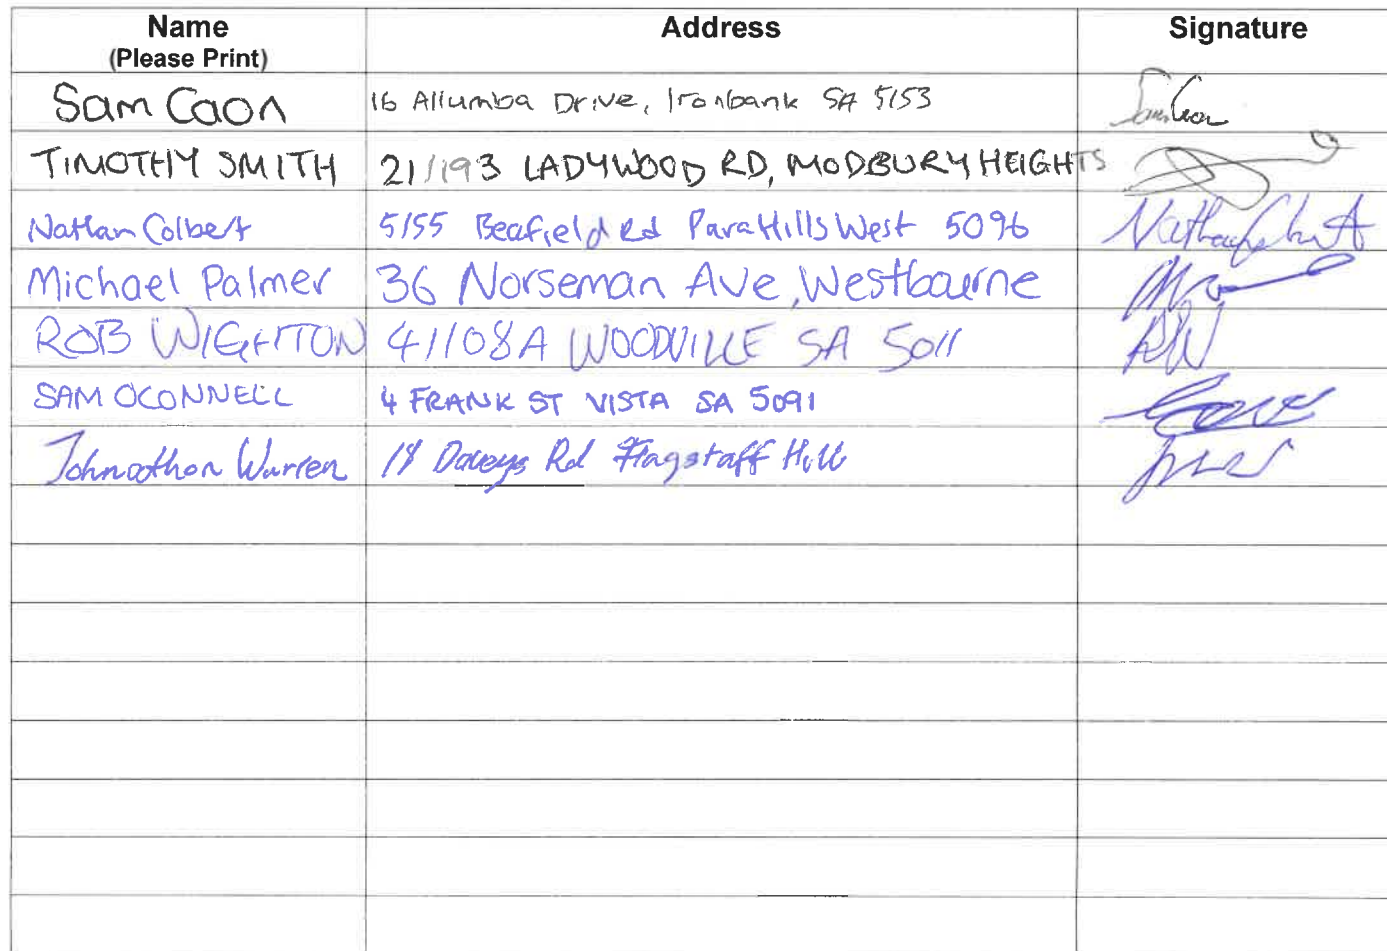 Name Address Signature
(Please Print)
Sam Caon 16 Allumba Drive, Ironbank SA 5153 Sam Caon
TIMOTHY SMITH 21/193 LADYWOOD RD, MODBURY HEIGHTS
Nathan Colbert 5/55 Beafield Rd Para Hills West 5096
Michael Palmer 36 Norseman Ave, Westbourne
ROB WIGHTON 4/108A WOODVILLE SA 5011 RW
SAM OCONNELL 4 FRANK ST VISTA SA 5091
Johnathon Warren Daveys Rd Flagstaff Hill